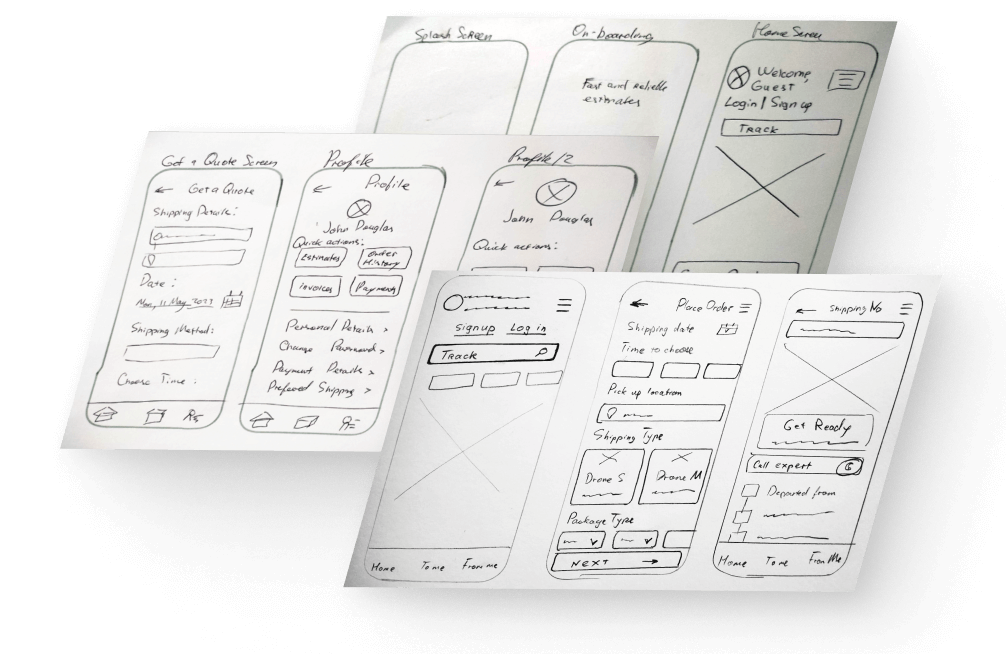 Splash Screen
On-boarding
Home Screen
Fast and reliable
estimates
Welcome,
Guest
Login | Sign up
TRACK
Get a Quote Screen
Get a Quote
Shipping Details:
Date:
Mon, 11 May 2023
Shipping Method:
Choose Time:
Profile
Profile
John Douglas
Quick actions:
Estimates
Order
History
invoices
Payments
Personal Details >
Change Password >
Payment Details >
Prefered Shipping >
Profile/2
John Douglas
Quick actions:
Signup Log in
TRACK
Home To me From me
Place Order
Shipping date
Time to choose
Pick up location
Shipping Type
Drone S
Drone M
Package Type
NEXT
Shipping No
Get Ready
Call expert
Departed from
Home To me From Me